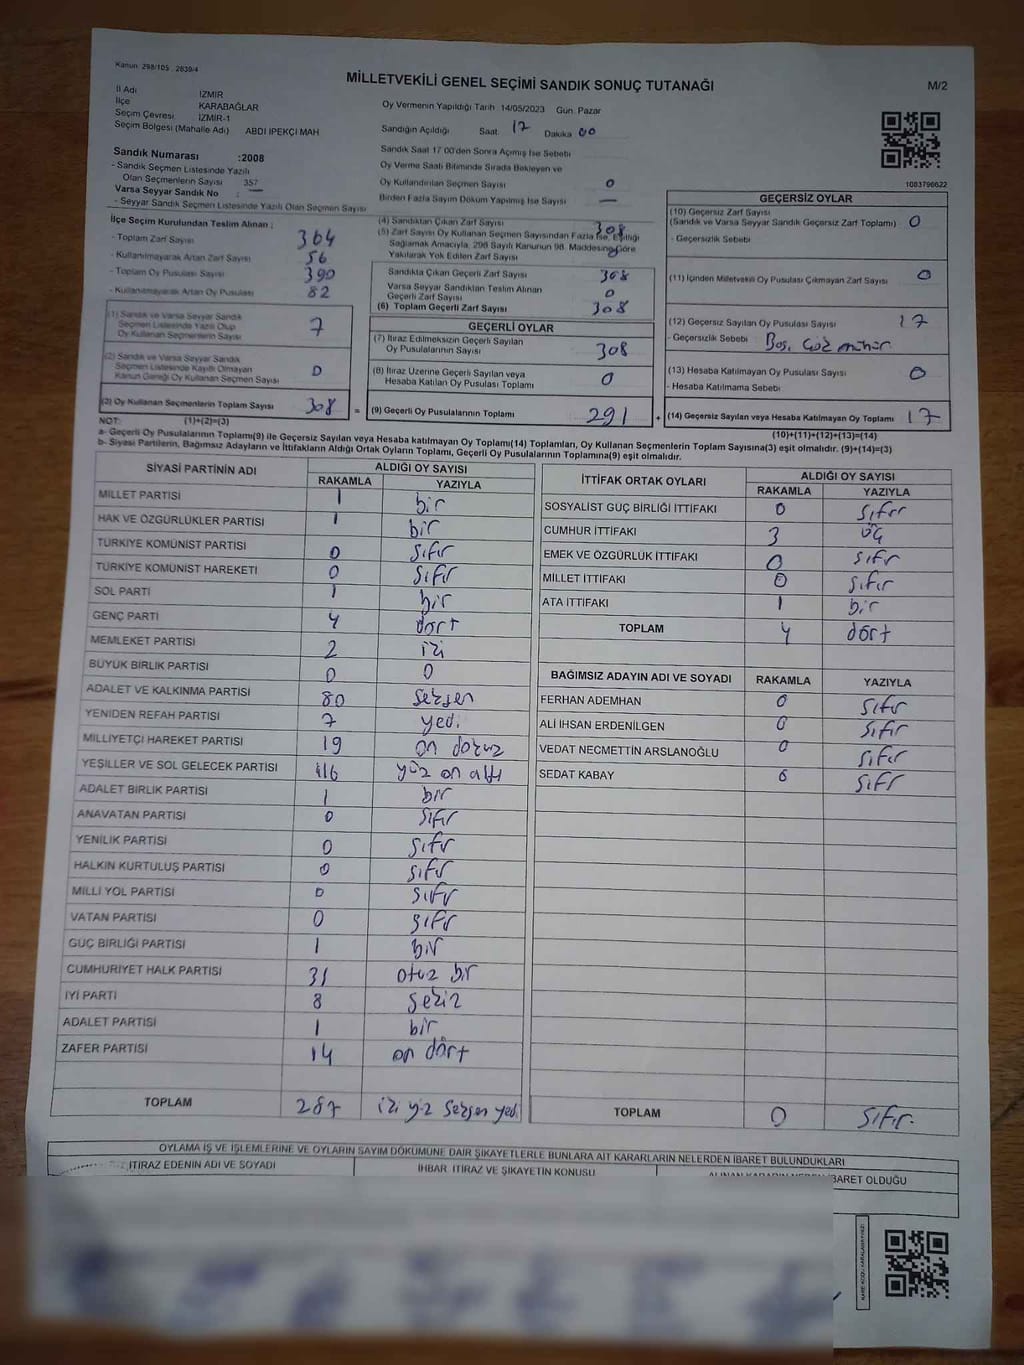 Kanun: 298/105 , 2839/4
MİLLETVEKİLİ GENEL SEÇİMİ SANDIK SONUÇ TUTANAĞI
M/2
İl Adı İZMİR
İlçe KARABAĞLAR
Seçim Çevresi İZMİR-1
Seçim Bölgesi (Mahalle Adı) ABDI IPEKÇI MAH
Oy Vermenin Yapıldığı Tarih 14/05/2023 Gün: Pazar
Sandığın Açıldığı Saat: 17 Dakika 00
Sandık Saat 17:00'den Sonra Açımış İse Sebebi
Oy Verme Saati Bitiminde Sırada Bekleyen ve
Oy Kullandırılan Seçmen Sayısı 0
Birden Fazla Sayım Döküm Yapılmış İse Sayısı —
Sandık Numarası :2008
- Sandık Seçmen Listesinde Yazılı
Olan Seçmenlerin Sayısı 357
Varsa Seyyar Sandık No : —
- Seyyar Sandık Seçmen Listesinde Yazılı Olan Seçmen Sayısı
1083796622
İlçe Seçim Kurulundan Teslim Alınan ;
- Toplam Zarf Sayısı 364
- Kullanılmayarak Artan Zarf Sayısı 56
- Toplam Oy Pusulası Sayısı 390
- Kullanılmayarak Artan Oy Pusulası 82
(1) Sandık ve Varsa Seyyar Sandık
Seçmen Listesinde Yazılı Olup
Oy Kullanan Seçmenlerin Sayısı 7
(2) Sandık ve Varsa Seyyar Sandık
Seçmen Listesinde Kayıtlı Olmayan
Kanun Gereği Oy Kullanan Seçmen Sayısı 0
(3) Oy Kullanan Seçmenlerin Toplam Sayısı 308
(4) Sandıktan Çıkan Zarf Sayısı 308
(5) Zarf Sayısı Oy Kullanan Seçmen Sayısından Fazla İse, Eşitliği
Sağlamak Amacıyla, 298 Sayılı Kanunun 98. Maddesine Göre
Yakılarak Yok Edilen Zarf Sayısı 0
Sandıkta Çıkan Geçerli Zarf Sayısı 308
Varsa Seyyar Sandıktan Teslim Alınan
Geçerli Zarf Sayısı 0
(6) Toplam Geçerli Zarf Sayısı 308
GEÇERLİ OYLAR
(7) İtiraz Edilmeksizin Geçerli Sayılan
Oy Pusulalarının Sayısı 308
(8) İtiraz Üzerine Geçerli Sayılan veya
Hesaba Katılan Oy Pusulası Toplamı 0
= (9) Geçerli Oy Pusulalarının Toplamı 291 +
GEÇERSİZ OYLAR
(10) Geçersiz Zarf Sayısı
(Sandık ve Varsa Seyyar Sandık Geçersiz Zarf Toplamı) 0
- Geçersizlik Sebebi
(11) İçinden Milletvekili Oy Pusulası Çıkmayan Zarf Sayısı 0
(12) Geçersiz Sayılan Oy Pusulası Sayısı 17
- Geçersizlik Sebebi Boş, Çok mühür
(13) Hesaba Katılmayan Oy Pusulası Sayısı 0
- Hesaba Katılmama Sebebi
(14) Geçersiz Sayılan veya Hesaba Katılmayan Oy Toplamı 17
NOT: (1)+(2)=(3)
(10)+(11)+(12)+(13)=(14)
a- Geçerli Oy Pusulalarının Toplamı(9) ile Geçersiz Sayılan veya Hesaba katılmayan Oy Toplamı(14) Toplamları, Oy Kullanan Seçmenlerin Toplam Sayısına(3) eşit olmalıdır. (9)+(14)=(3)
b- Siyasi Partilerin, Bağımsız Adayların ve İttifakların Aldığı Ortak Oyların Toplamı, Geçerli Oy Pusulalarının Toplamına(9) eşit olmalıdır.
SİYASİ PARTİNİN ADI ALDIĞI OY SAYISI
RAKAMLA YAZIYLA
MİLLET PARTİSİ 1 bir
HAK VE ÖZGÜRLÜKLER PARTİSİ 1 bir
TÜRKİYE KOMÜNİST PARTİSİ 0 sıfır
TÜRKİYE KOMÜNİST HAREKETİ 0 sıfır
SOL PARTİ 1 bir
GENÇ PARTİ 4 dört
MEMLEKET PARTİSİ 2 iki
BÜYÜK BİRLİK PARTİSİ 0 0
ADALET VE KALKINMA PARTİSİ 80 seksen
YENİDEN REFAH PARTİSİ 7 yedi
MİLLİYETÇİ HAREKET PARTİSİ 19 on dokuz
YEŞİLLER VE SOL GELECEK PARTİSİ 116 yüz on altı
ADALET BİRLİK PARTİSİ 1 bir
ANAVATAN PARTİSİ 0 sıfır
YENİLİK PARTİSİ 0 sıfır
HALKIN KURTULUŞ PARTİSİ 0 sıfır
MİLLİ YOL PARTİSİ 0 sıfır
VATAN PARTİSİ 0 sıfır
GÜÇ BİRLİĞİ PARTİSİ 1 bir
CUMHURİYET HALK PARTİSİ 31 otuz bir
İYİ PARTİ 8 sekiz
ADALET PARTİSİ 1 bir
ZAFER PARTİSİ 14 on dört
TOPLAM 287 iki yüz seksen yedi
İTTİFAK ORTAK OYLARI ALDIĞI OY SAYISI
RAKAMLA YAZIYLA
SOSYALİST GÜÇ BİRLİĞİ İTTİFAKI 0 sıfır
CUMHUR İTTİFAKI 3 üç
EMEK VE ÖZGÜRLÜK İTTİFAKI 0 sıfır
MİLLET İTTİFAKI 0 sıfır
ATA İTTİFAKI 1 bir
TOPLAM 4 dört
BAĞIMSIZ ADAYIN ADI VE SOYADI RAKAMLA YAZIYLA
FERHAN ADEMHAN 0 sıfır
ALİ İHSAN ERDENİLGEN 0 sıfır
VEDAT NECMETTİN ARSLANOĞLU 0 sıfır
SEDAT KABAY 0 sıfır
TOPLAM 0 sıfır.
OYLAMA İŞ VE İŞLEMLERİNE VE OYLARIN SAYIM DÖKÜMÜNE DAİR ŞİKAYETLERLE BUNLARA AİT KARARLARIN NELERDEN İBARET BULUNDUKLARI
İTİRAZ EDENİN ADI VE SOYADI
İHBAR, İTİRAZ VE ŞİKAYETİN KONUSU
ALINAN KARARIN NEDEN İBARET OLDUĞU